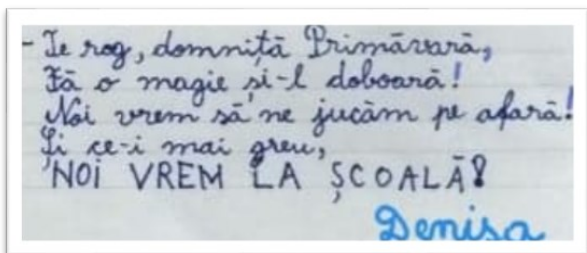 - Te rog, domniță Primăvară,
Fă o magie și-l doboară!
Noi vrem să ne jucăm pe afară!
Și ce-i mai greu,
NOI VREM LA ȘCOALĂ!
Denisa